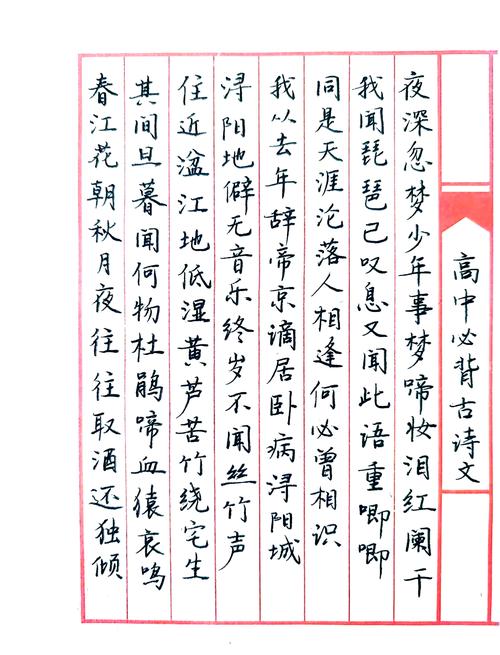 高中必背古诗文
夜深忽梦少年事梦啼妆泪红阑干
我闻琵琶已叹息又闻此语重唧唧
同是天涯沦落人相逢何必曾相识
我从去年辞帝京谪居卧病浔阳城
浔阳地僻无音乐终岁不闻丝竹声
住近湓江地低湿黄芦苦竹绕宅生
其间旦暮闻何物杜鹃啼血猿哀鸣
春江花朝秋月夜往往取酒还独倾